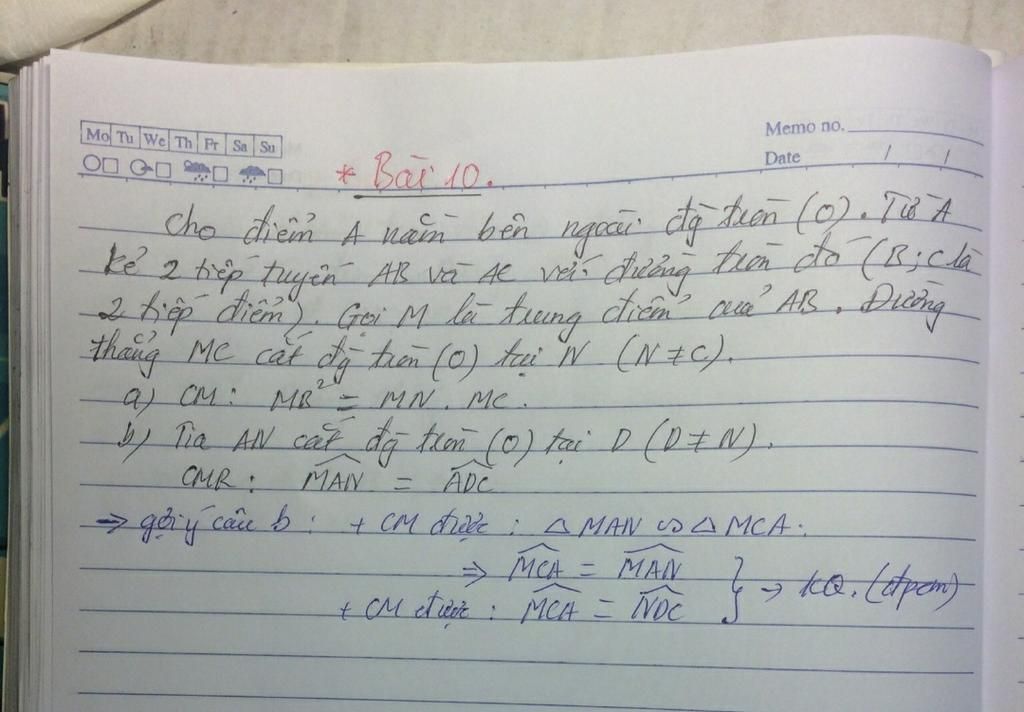 Mo Tu We Th Fr Sa Su
Memo no.
Date / /
* Bài 10.
Cho điểm A nằm bên ngoài đg tròn (O). Từ A
kẻ 2 tiếp tuyến AB và AC với đường tròn đó (B; C là
2 tiếp điểm). Gọi M là trung điểm của AB. Đường
thẳng MC cắt đg tròn (O) tại N (N ≠ C).
a) CM: MB² = MN. MC.
b) Tia AN cắt đg tròn (O) tại D (D ≠ N).
CMR: \widehat{MAN} = \widehat{ADC}
⇒ gợi ý câu b: + CM được: Δ MAN ∽ Δ MCA.
⇒ \widehat{MCA} = \widehat{MAN}
+ CM được: \widehat{MCA} = \widehat{NDC} } → KQ. (đpcm)